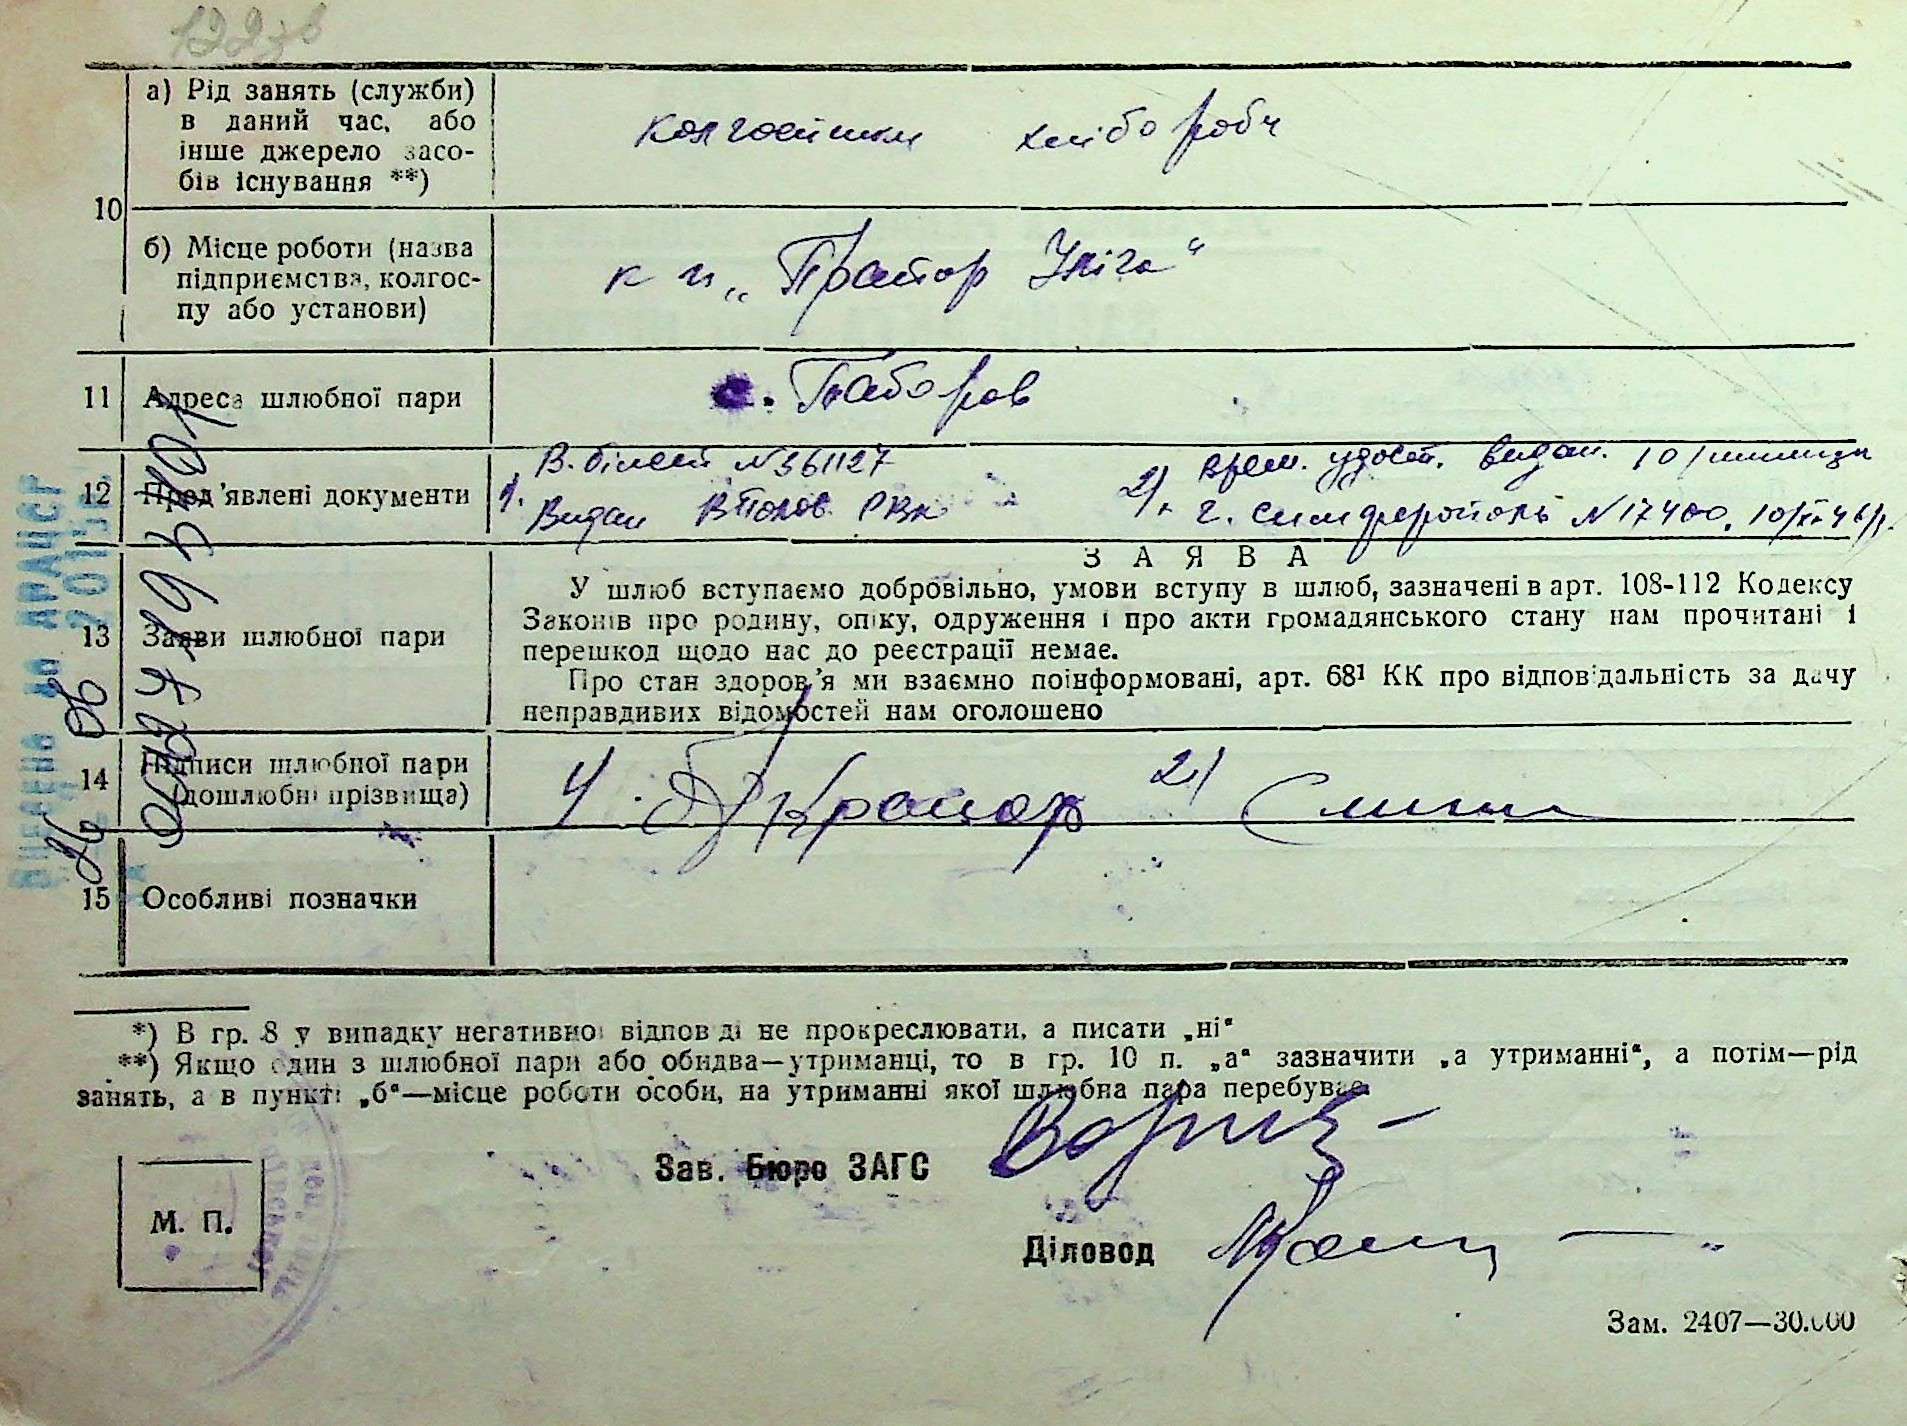 а) Рід занять (служби)
в даний час, або
інше джерело засо-
бів існування **)
колгоспники хлібороби
10
б) Місце роботи (назва
підприємства, колгос-
пу або установи)
к-п „Прапор Іліча“
11 Адреса шлюбної пари
с. Таборов
12 Пред'явлені документи
1. В. білет №361127
Видан РВК
2). врем. удост. видан. 10/
г. Симферополь №17400. 10/ 46 р.
13 Заяви шлюбної пари
ЗАЯВА
У шлюб вступаємо добровільно, умови вступу в шлюб, зазначені в арт. 108-112 Кодексу
Законів про родину, опіку, одруження і про акти громадянського стану нам прочитані і
перешкод щодо нас до реєстрації немає.
Про стан здоров'я ми взаємно поінформовані, арт. 68¹ КК про відповідальність за дачу
неправдивих відомостей нам оголошено
14 Підписи шлюбної пари
(дошлюбні прізвища)
1) 2)
15 Особливі позначки
*) В гр. 8 у випадку негативної відповіді не прокреслювати, а писати „ні“
**) Якщо один з шлюбної пари або обидва—утриманці, то в гр. 10 п. „а“ зазначити „а утриманні“, а потім—рід
занять, а в пункті „б“—місце роботи особи, на утриманні якої шлюбна пара перебуває
Зав. Бюро ЗАГС
М. П.
Діловод
Зам. 2407—30.000